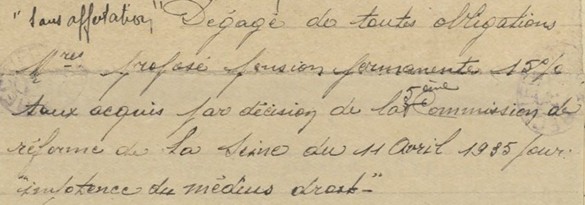 "sans affectation" Dégagé de toutes obligations
Mres proposé pension permanente 15%
taux acquis par décision de la 5ème Commission de
réforme de La Seine du 11 Avril 1935 pour:
"impotence du médius droit"